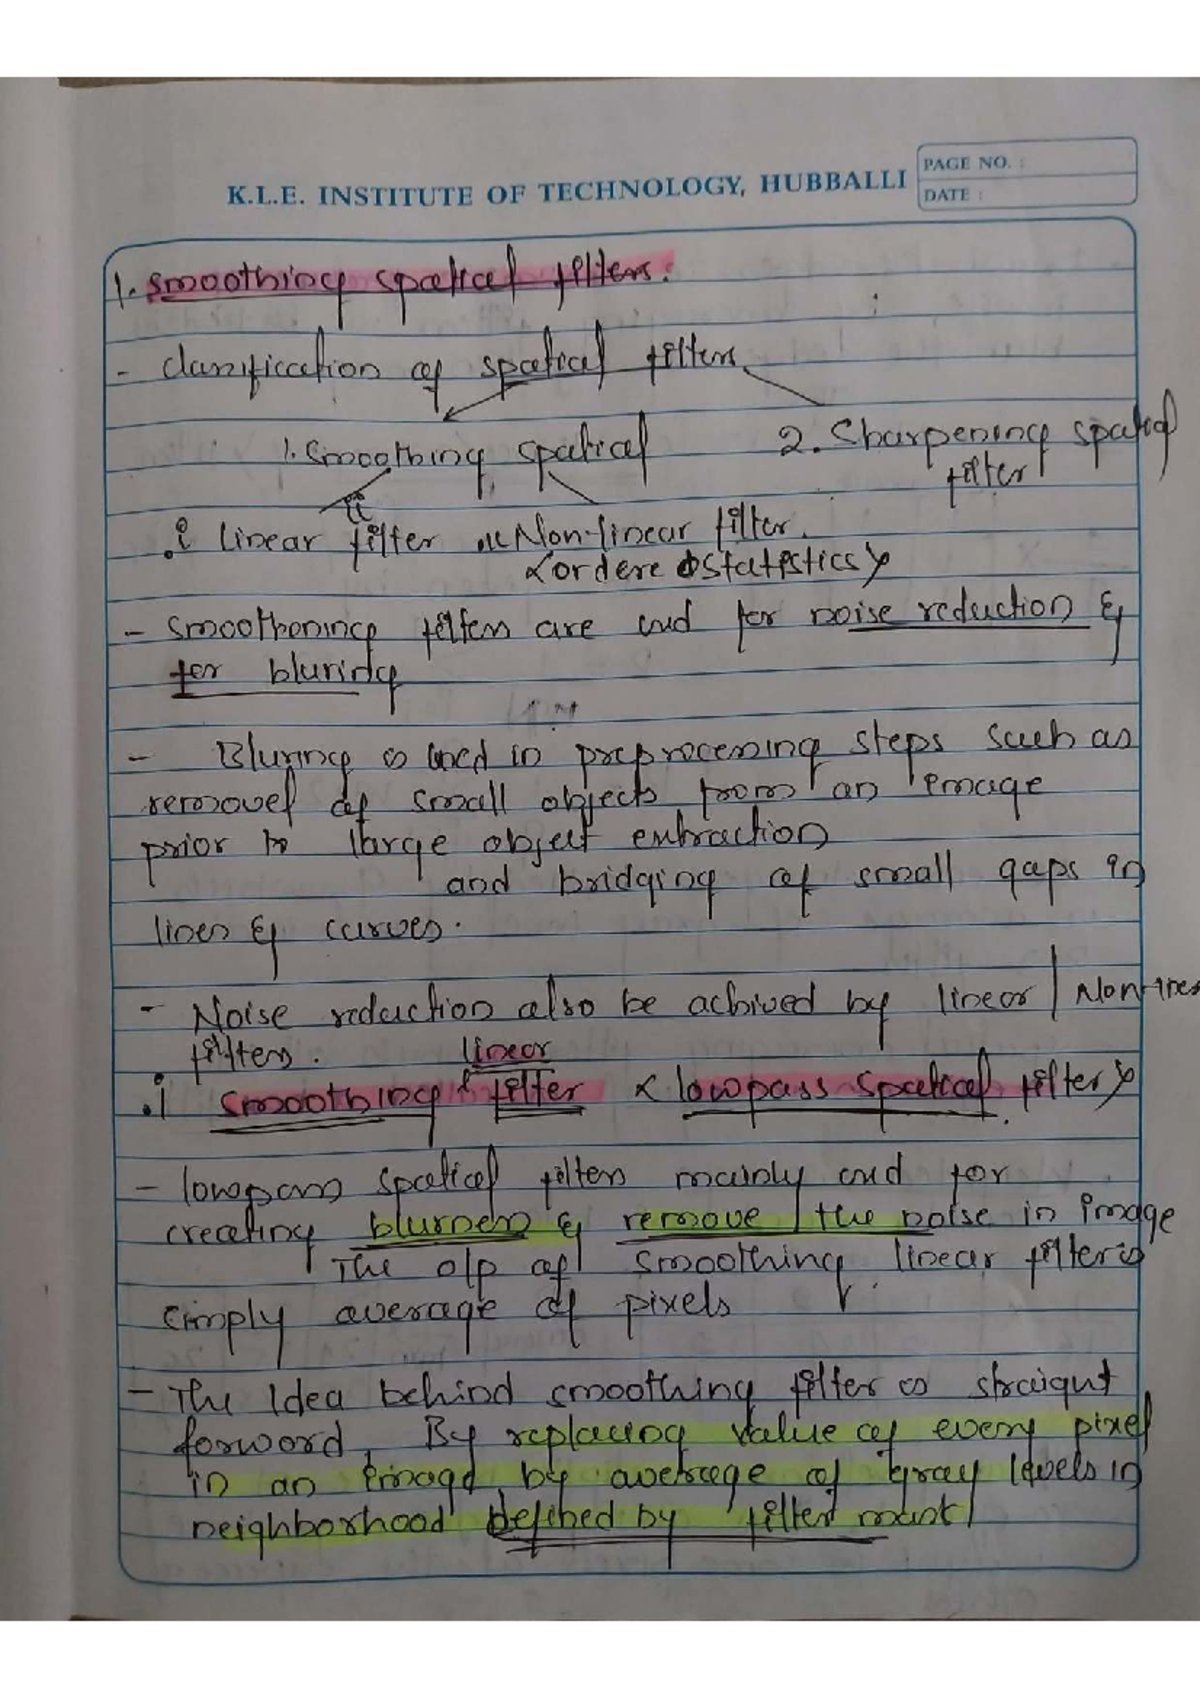 K.L.E. INSTITUTE OF TECHNOLOGY, HUBBALLI
PAGE NO. :
DATE :
1. smoothing spatial filters.
- classification of spatial filters
1. smoothing spatial
2. Sharpening spatial
filter
i linear filter ii Non-linear filter.
<ordere statistics>
- smoothening filters are used for noise reduction &
for bluring
- Bluring is used in preprocessing steps such as
removel of small objects from an image
prior to large object extraction
and bridging of small gaps in
lines & curves.
- Noise reduction also be achived by linear / Non-linear
filters.
linear
.i smoothing filter < lowpass spatial filter>
- lowpass spatial filters mainly used for
creating blurness & remove the noise in image
The o/p of smoothing linear filter is
simply average of pixels
- The Idea behind smoothing filter is straight
forword, By replacing value of every pixel
in an image by average of gray levels in
neighborhood defined by filter mask